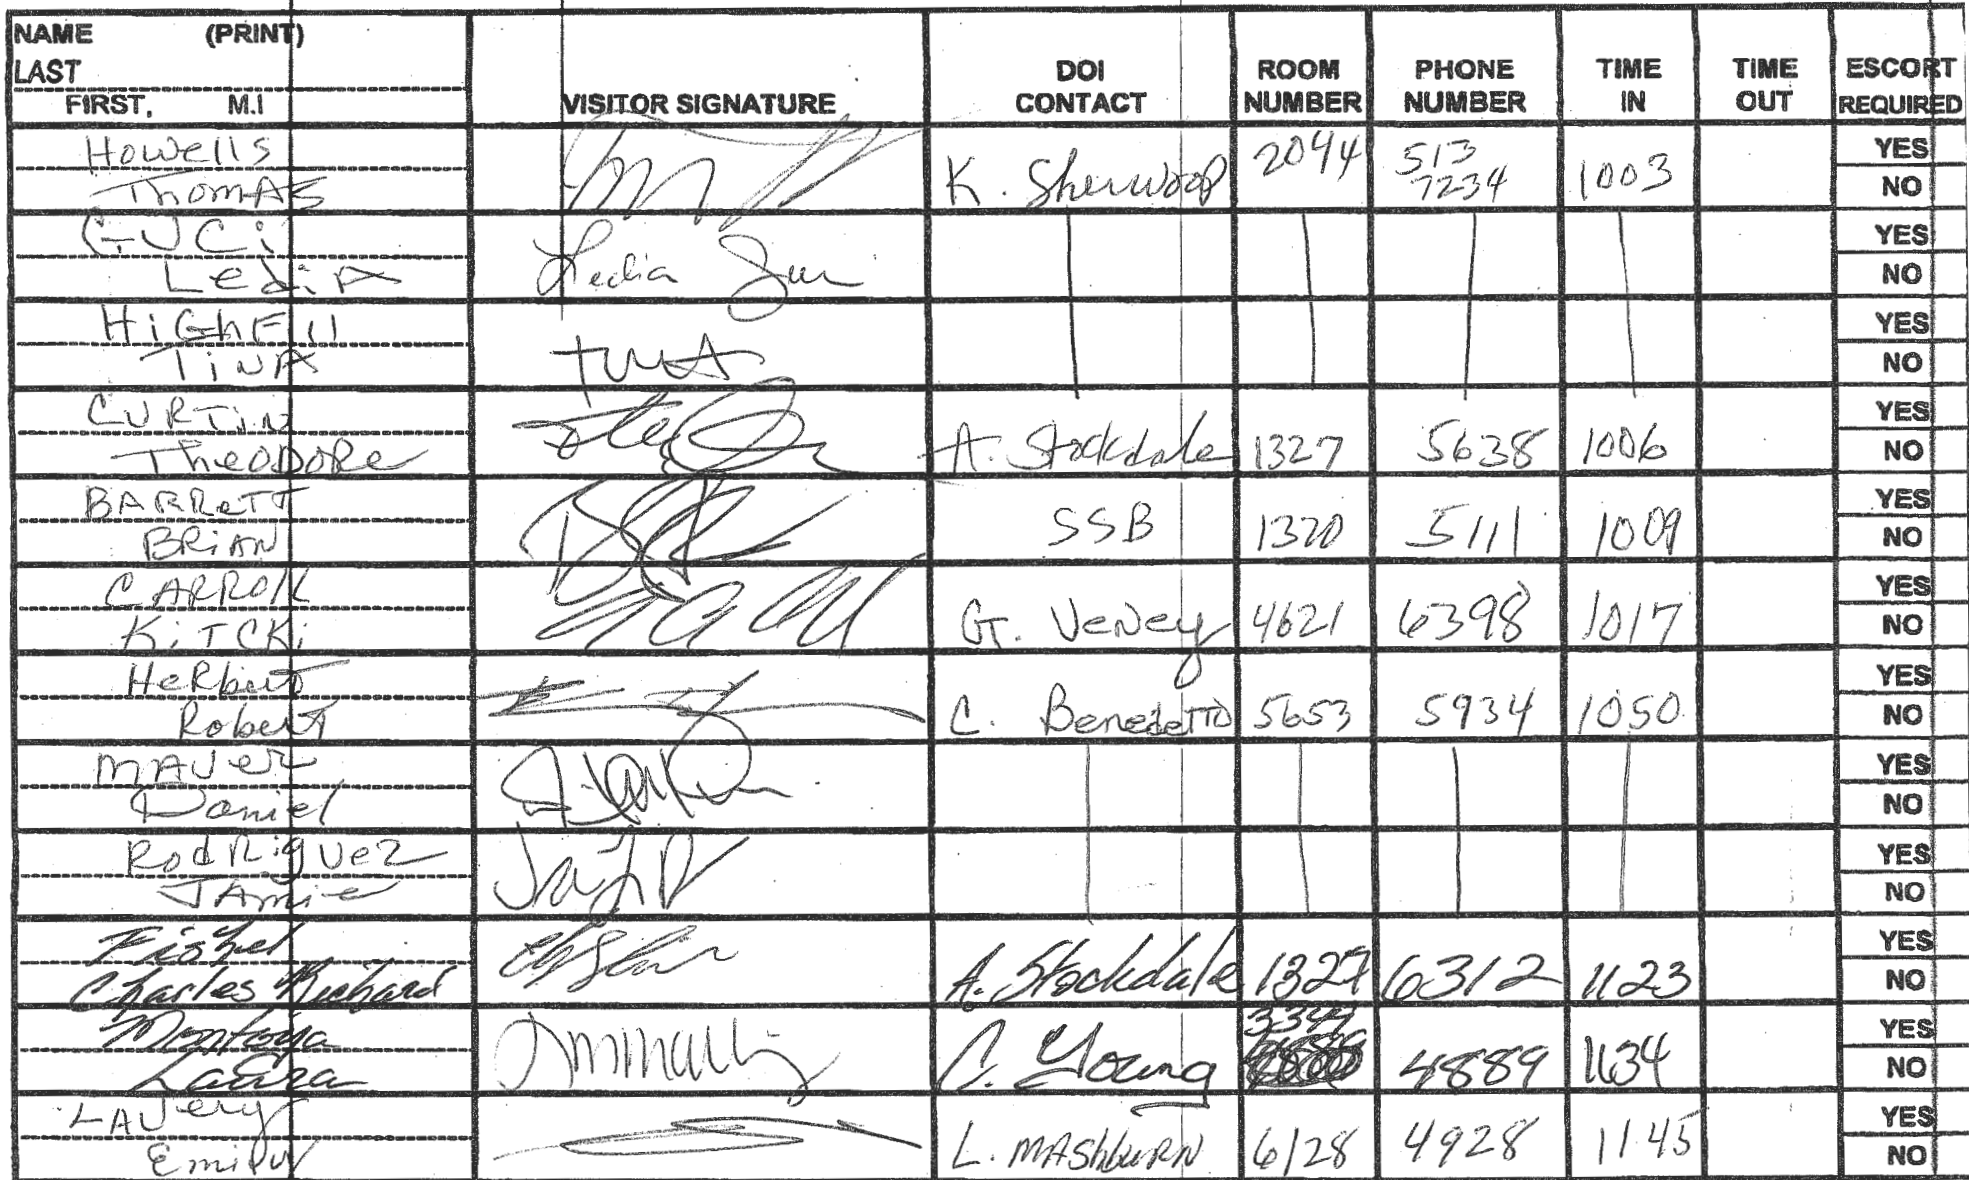 NAME (PRINT)
LAST
FIRST, M.I
VISITOR SIGNATURE
DOI CONTACT
ROOM NUMBER
PHONE NUMBER
TIME IN
TIME OUT
ESCORT REQUIRED
Howells
Thomas K. Sherwood 2044 513 7234 1003 YES NO
GUCi
LediA Ledia YES NO
HiGhFill
TiNA YES NO
CURTiN
TheoDoRe A. Stockdale 1327 5638 1006 YES NO
BARReTT
BRiAN SSB 1320 5111 1009 YES NO
CARROll
KiTCKi G. VeNey 4621 6398 1017 YES NO
HeRbert
Robert C. BenedeTTo 5653 5934 1050 YES NO
Daniel YES NO
RodRiguez
JAmie YES NO
Fishel
Charles Richard A. Stockdale 1327 6312 1123 YES NO
Montoya
Laura C. Young 3349 4889 1134 YES NO
LAVery
Emily L. MAShbuRN 6128 4928 1145 YES NO